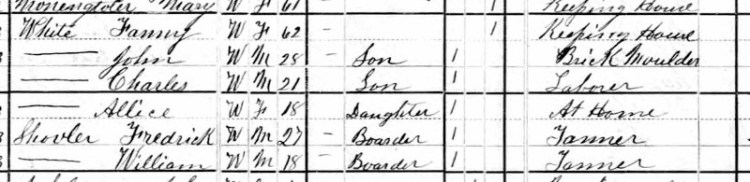 Mary W F 61 Keeping Home
White Fanny W F 62 — 1 Keeping House
—— John W M 28 — Son 1 Brick Moulder
—— Charles W M 21 — Son 1 Laborer
—— Allice W F 18 — Daughter 1 At Home
Shovler Fredrick W M 27 — Boarder 1 Tanner
—— William W M 18 — Boarder 1 Tanner